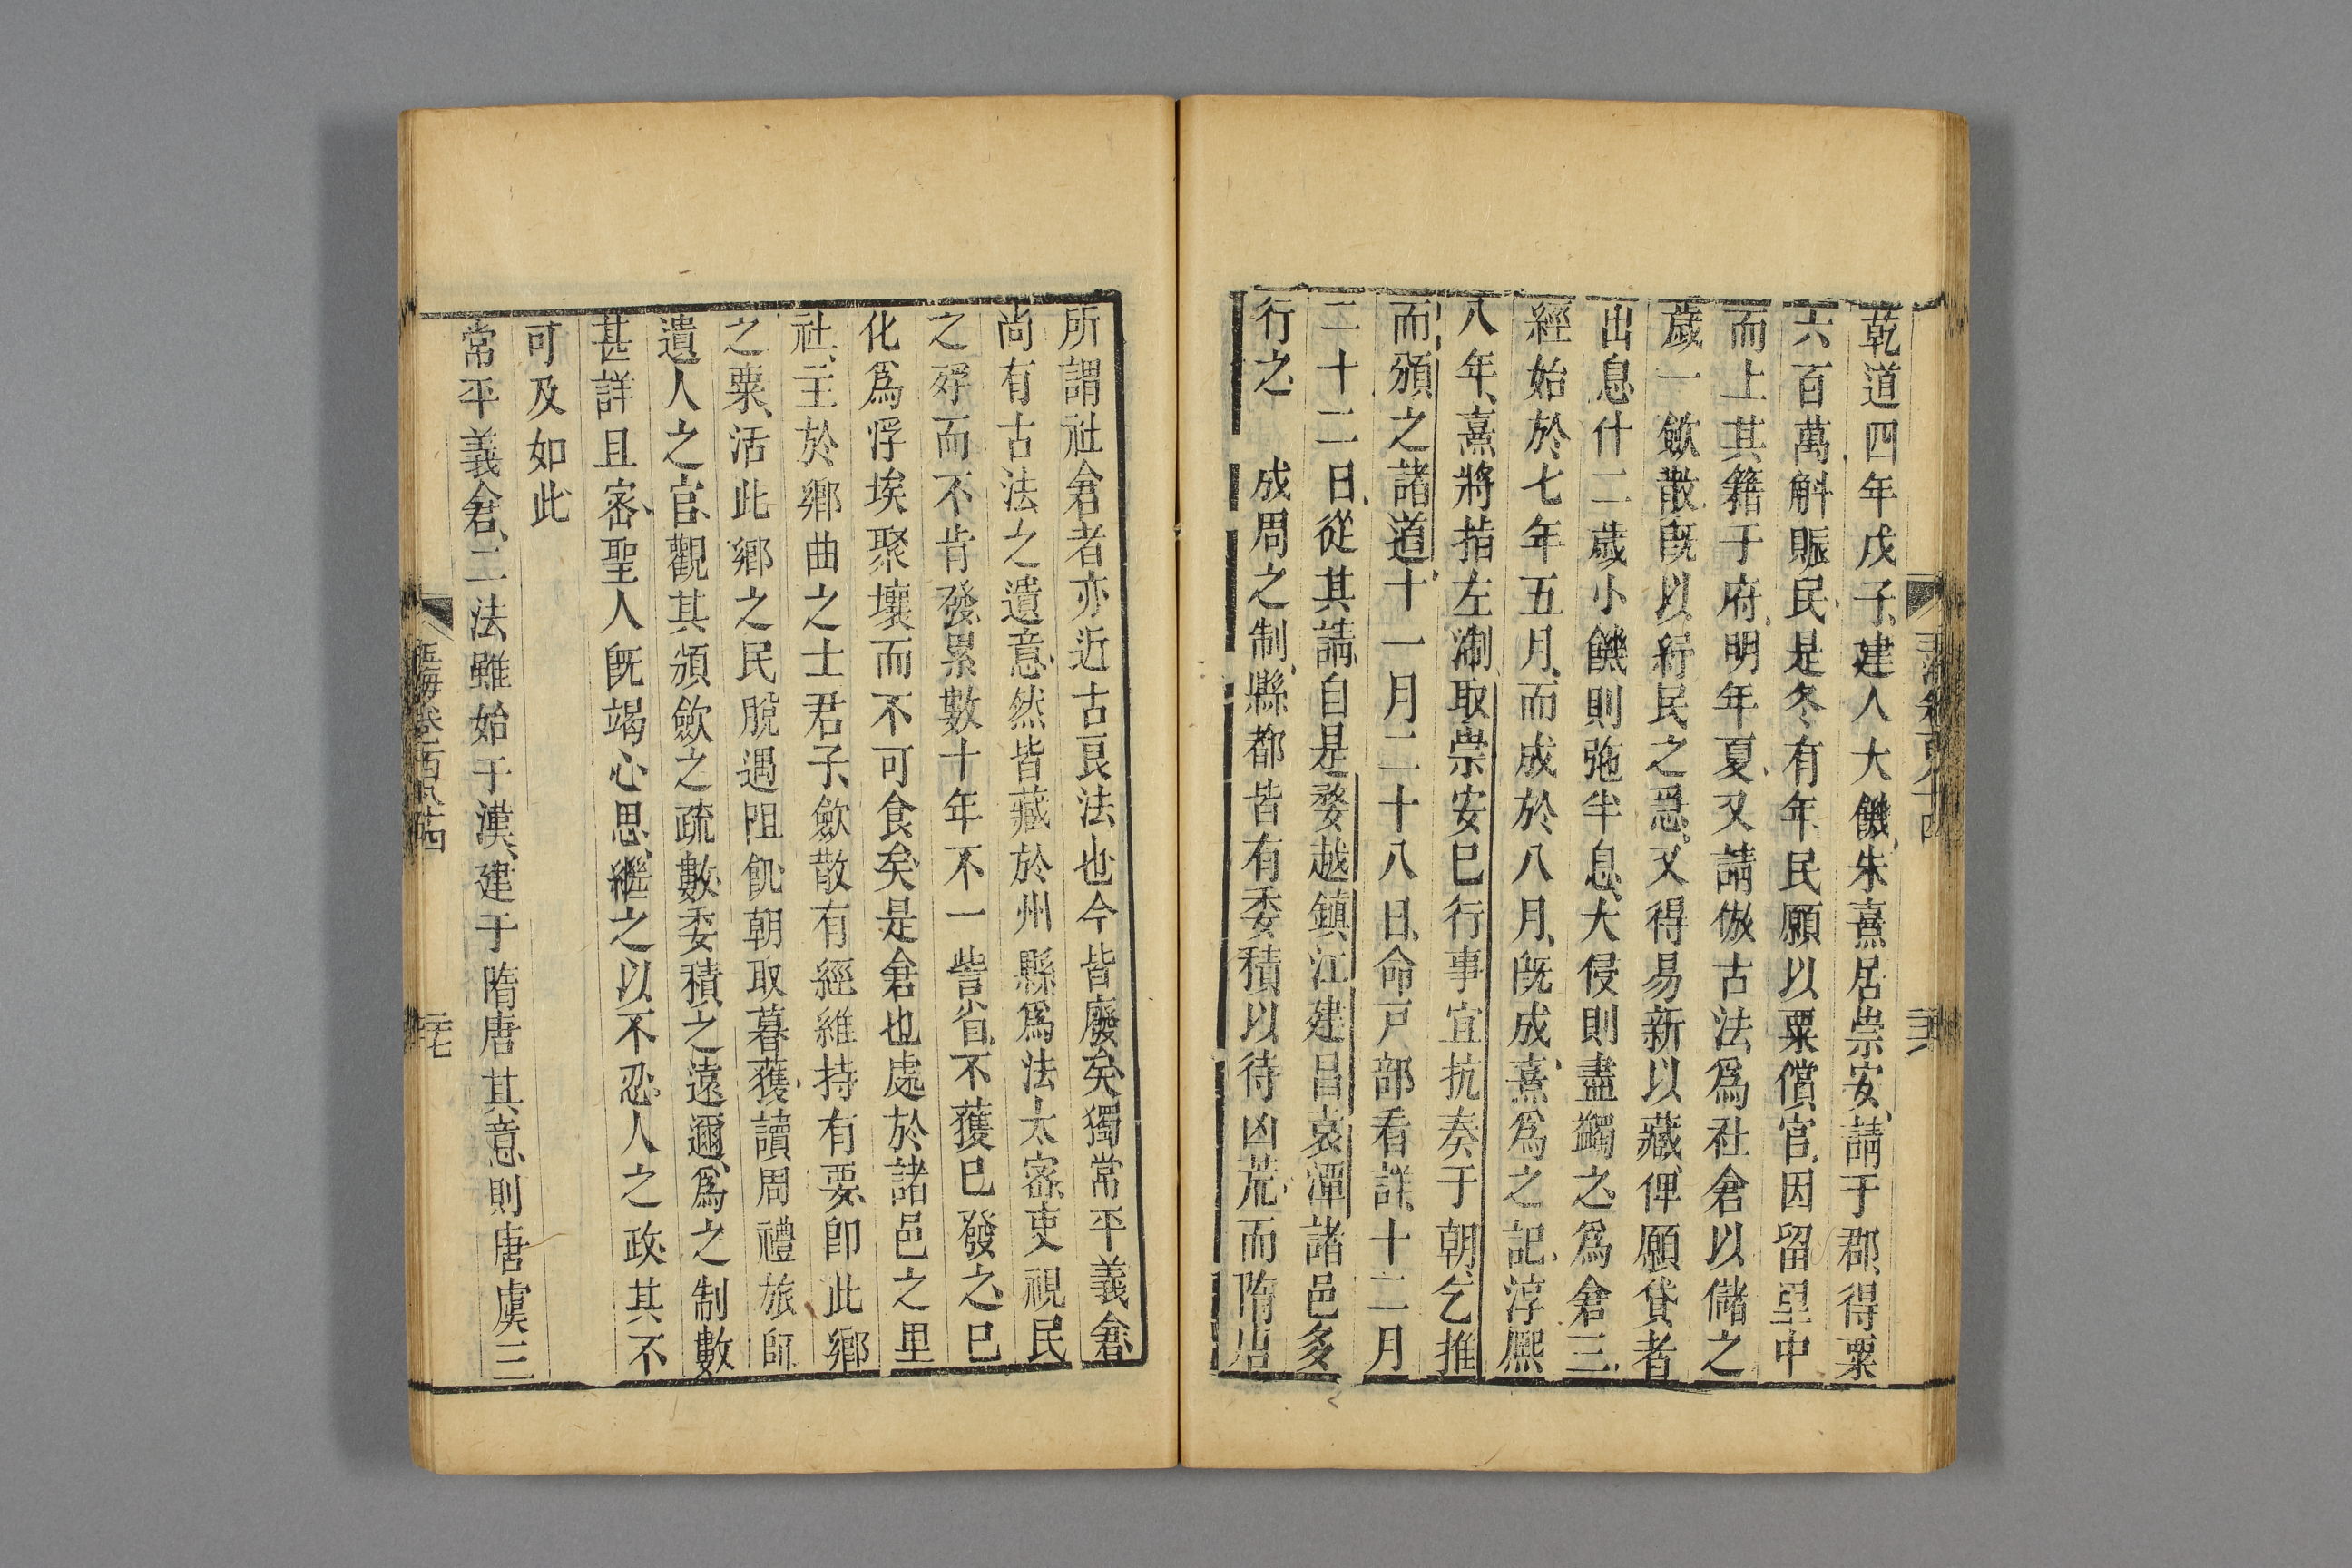 乾道四年戊子建人大饑朱熹居崇安請于郡得粟
六百萬斛賑民是冬有年民願以粟償官因留里中
而上其籍于府明年夏又請倣古法爲社倉以儲之
歲一斂散旣以紓民之急又得易新以藏俾願貸者
出息什二歲小饑則弛半息大侵則盡蠲之爲倉三
經始於七年五月而成於八月旣成熹爲之記淳熙
八年熹將指左淛取崇安已行事宜抗奏于朝乞推
而頒之諸道十一月二十八日命戸部看詳十二月
二十二日從其請自是婺越鎮江建昌袁潭諸邑多
行之　成周之制縣都皆有委積以待凶荒而隋唐
所謂社倉者亦近古良法也今皆廢矣獨常平義倉
尚有古法之遺意然皆藏於州縣爲法太密吏視民
之殍而不肯發累數十年不一訾省不獲已發之已
化爲浮埃聚壤而不可食矣是倉也處於諸邑之里
社主於鄉曲之士君子斂散有經維持有要卽此鄉
之粟活此鄉之民脫遇阻飢朝取暮獲讀周禮旅師
遺人之官觀其頒斂之疏數委積之遠邇爲之制數
甚詳且密聖人旣竭心思繼之以不忍人之政其不
可及如此
常平義倉二法雖始于漢建于隋唐其意則唐虞三
玉海卷一百八十四
二十七